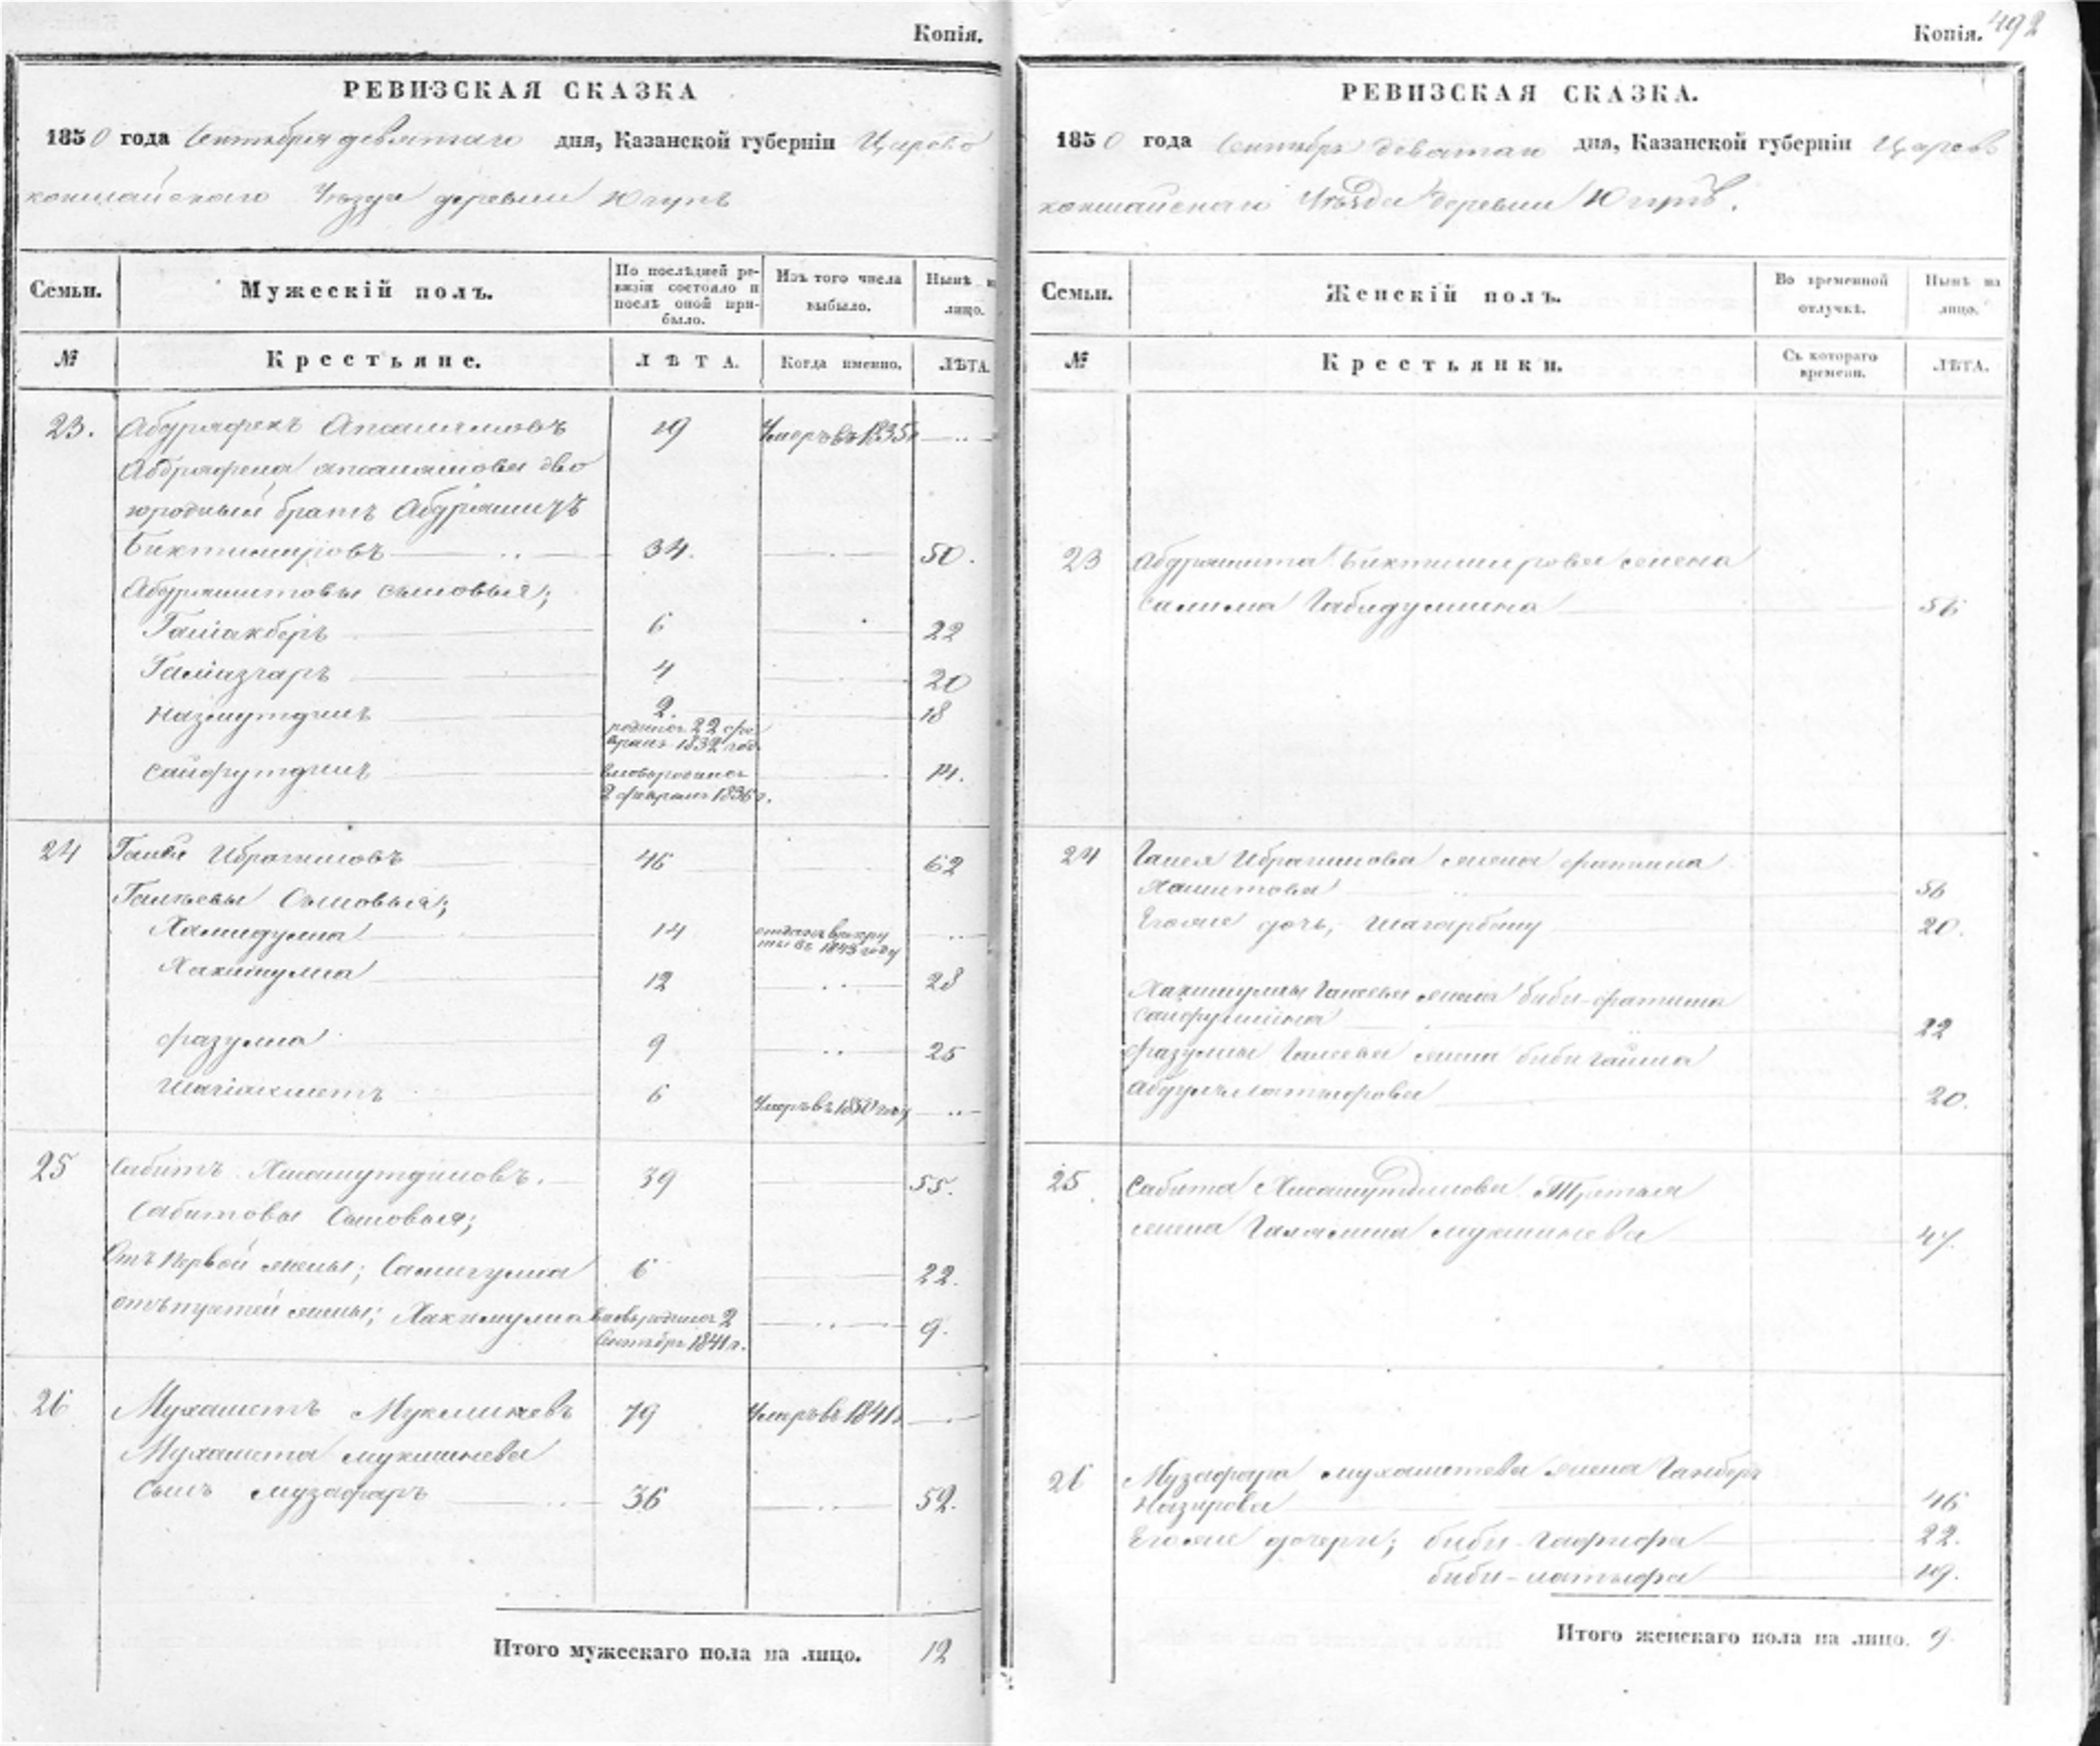 Копія.
РЕВИЗСКАЯ СКАЗКА
1850 года Сентября девятаго дня, Казанской губерніи Царево
кокшайскаго Уѣзда деревни Югупъ
Семьи. Мужескій полъ. По послѣдней ревизіи состояло и послѣ оной прибыло. Изъ того числа выбыло. Нынѣ на лицо.
№ Крестьяне. ЛѢТА. Когда именно. ЛѢТА.
23. Абдрафекъ Апаналмовъ 19 Умеръ въ 1835 г.
Абдрафека двою
родный братъ Абдрашитъ
Биктимировъ 34. 50.
Абдрашитовы сыновья;
Галіакберъ 6 22
Галіазгаръ 4 20
Назмутдинъ 2. 18
родился 22 фе
враля 1832 год.
Сайфутдинъ вновь родился 14.
2 февраля 1836 г.
24 Галей Ибрагимовъ 46 62
Галѣевы Сыновья;
Хамидулла 14 отданъ в рекру
ты въ 1843 году
Хакимулла 12 28
Фазулла 9 25
Шагіахметъ 6 Умеръ въ 1850 году
25 Сабитъ Хисамутдиновъ. 39 55.
Сабитовы Сыновья;
Отъ первой жены; Самигулла 6 22.
жены; Хакимулла вновь родился 2 9.
Сентября 1841 г.
26 Мухаметъ Мукминевъ 79 Умеръ въ 1841 г.
Мухамета Мукминева
Сынъ Музафаръ 36 52.
Итого мужескаго пола на лицо. 12
Копія. 492
РЕВИЗСКАЯ СКАЗКА.
1850 года Сентября девятаго дня, Казанской губерніи Царево
кокшайскаго Уѣзда деревни Югупъ.
Семьи. Женскій полъ. Во временной отлучкѣ. Нынѣ на лицо.
№ Крестьянки. Съ котораго времени. ЛѢТА.
23 Абдрашита Биктимирова жена
Салима Габидуллина 56
24 Галея Ибрагимова жена Фатима
Хамитова 56
Его же дочь; Шагарбану 20.
Хакимуллы Галеева жена Биби-фатима
Сайфуллина 22
Фазуллы Галеева жена Биби Гайша
Абдуллатыфова 20.
25 Сабита Хисамутдинова Третья
жена Галямла Мукминева 47.
26 Музафара Мухаметева жена
Назирова 46
Его же дочери; Биби-Гафифа 22.
Биби-латыфа 19.
Итого женскаго пола на лицо. 9